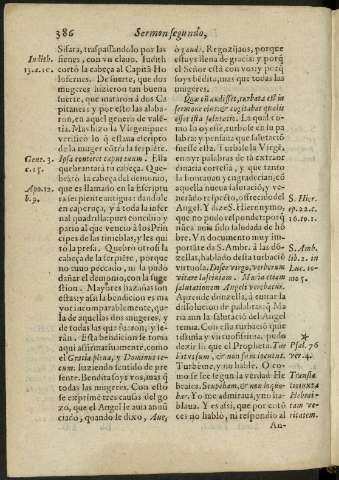 386
Sermon segundo,
Sisara, traspassandolo por las
sienes, con vn clauo. Iudith
cortó la cabeça al Capitã Ho
lofernes. De suerte, que dos
mugeres hizieron tan buena
suerte, que mataron á dos Ca
pitanes: y por esto las alaba-
ron, en aquel genero de valē-
tia. Mas hizo la Virgen: pues
verificò lo q̃ estaua escripto
de la muger cõtra la serpiēte.
Ipsa conteret caput tuum. Ella
quebrantará tu cabeça. Que-
brãtò la cabeça del demonio,
que es llamado en la Escriptu
ra serpiente antigua: dandole
en caperuça, y á toda la infer
nal quadrilla: pues concibió y
pario al que venció à los Prin
cipes de las tinieblas, y les qui
tò la presa. Quebrò otrosi la
cabeça de la serpiēte, porque
no tuuo peccado, ni la pudo
dañar el demonio, con la suge
stion. Mayores hazañas son
estas: y assi la bendicion es ma
yor incomparablemente, que
la de aquellas dos mugeres, y
de todas las que fueron, y se-
rán. Esta bendicion se toma
aqui affirmatiuamente, como
el Gratia plena, y Dominus te-
cum: haziendo sentido de pre
sente. Bendita soys vos, mas q̃
todas las mugeres. Con esto
se exprime tres causas del go
zo, que el Angel le auia annũ
ciado, quando le dixo, Aue,
Iudith.
13.c.10.
Gene. 3.
c.15.
Apo.12.
b.9.
ò gaude. Regozijaos, porque
estays llena de gracia: y porq̃
el Señor está con vos: y porq̃
soys bēdita, mas que todas las
mugeres.
Quæ cũ audisset, turbata est in
sermone eius: & cogitabat qualis
esset ista salutatio. La qual co-
mo lo oyesse, turbose en su pa
labra: y pensaua que salutaciõ
fuesse ella. Turbase la Virgē,
en oyr palabras de tã extraor
dinaria cortesia, y que en tan-
to la honrauan y engradecian, cõ
aquella nueua salutació, y ve-
nerado respecto, offreciendosele el
Angel. Y dize S. Hieronymo,
que no pudo responder: porq̃
nũca auia sido saludada de hõ
bre. Y un documento muy im-
portãte da S. Ambr. á las dõ-
zellas, hablado desta turbaciõ
virtuosa. Disce virgo, verborum
vitare lasciuiam. Maria etiam
salutationem Angeli verebatur.
Aprende donzella, á euitar la
dissolucion de palabras: q̃ Ma
ria aun la salutació del Angel
temia. Con esta turbacion que
tuuo, pudo
dezir lo que el Propheta. Tur
batus sum, & non sum locutus.
Turbeme, y no hable. O co-
mo se lee segun la verdad He
brayca. Stupebam, & non loque-
bar. Yo me admiraua, y no ha-
blaua. Y es assi, que por entõ
ces no habló, ni respondio al
S. Hier.
ep.22.c.
16.to.1.
S. Amb.
lib.2. in
Luc. to-
mo 5.
*
Psal. 76
ver.4.
Transla
tio iuxta
Hebrai-
cam ve-
ritatem.
An-